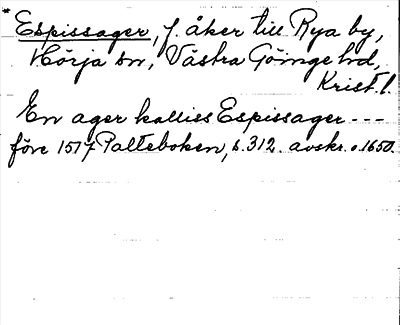 * Espissager, f. åker till Rya by,
Hörja sn, Västra Göinge hd,
Krist. l.
En ager kalliss Espissager ---
före 1517 Palteboken, s. 312. avskr. o. 1650.